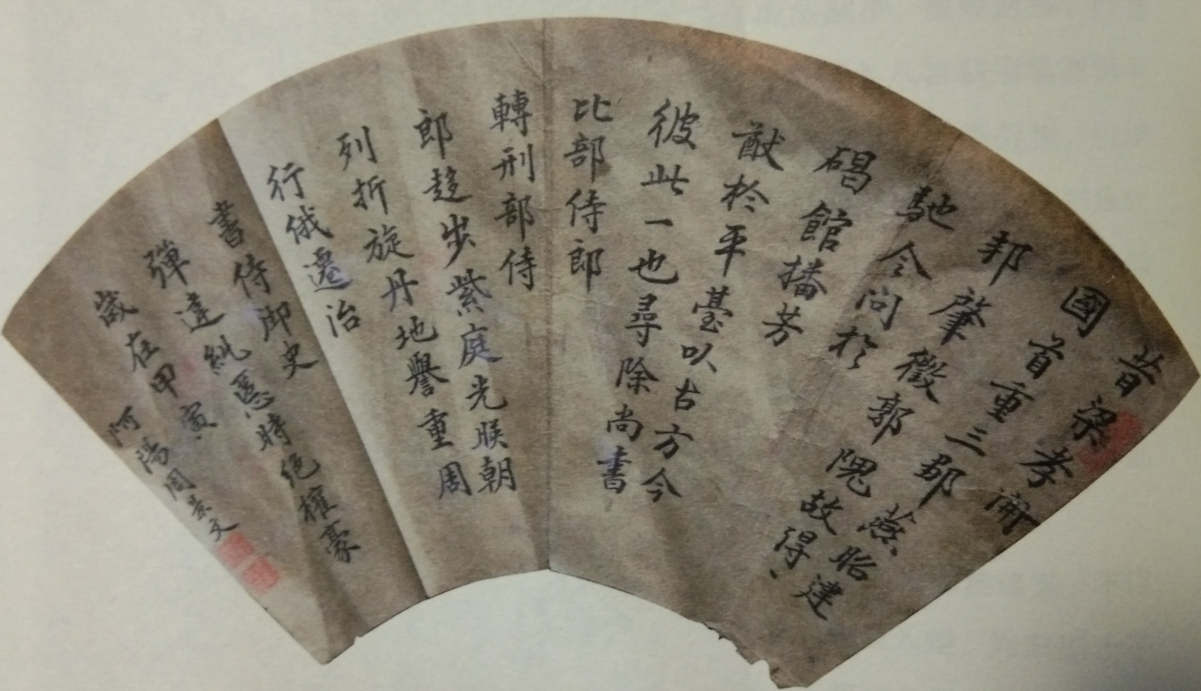 昔梁孝開
國首重三鄒燕昭建
邦肇徵郭隗故得、
馳令問於
碣館播芳
猷於平臺以古方今
彼此一也尋除尚書
比部侍郎
轉刑部侍
郎趍步紫庭光映朝
列折旋丹地譽重周
行俄遷治
書侍御史
彈違糺慝時絕權豪
歲在甲寅
阿陽周景文